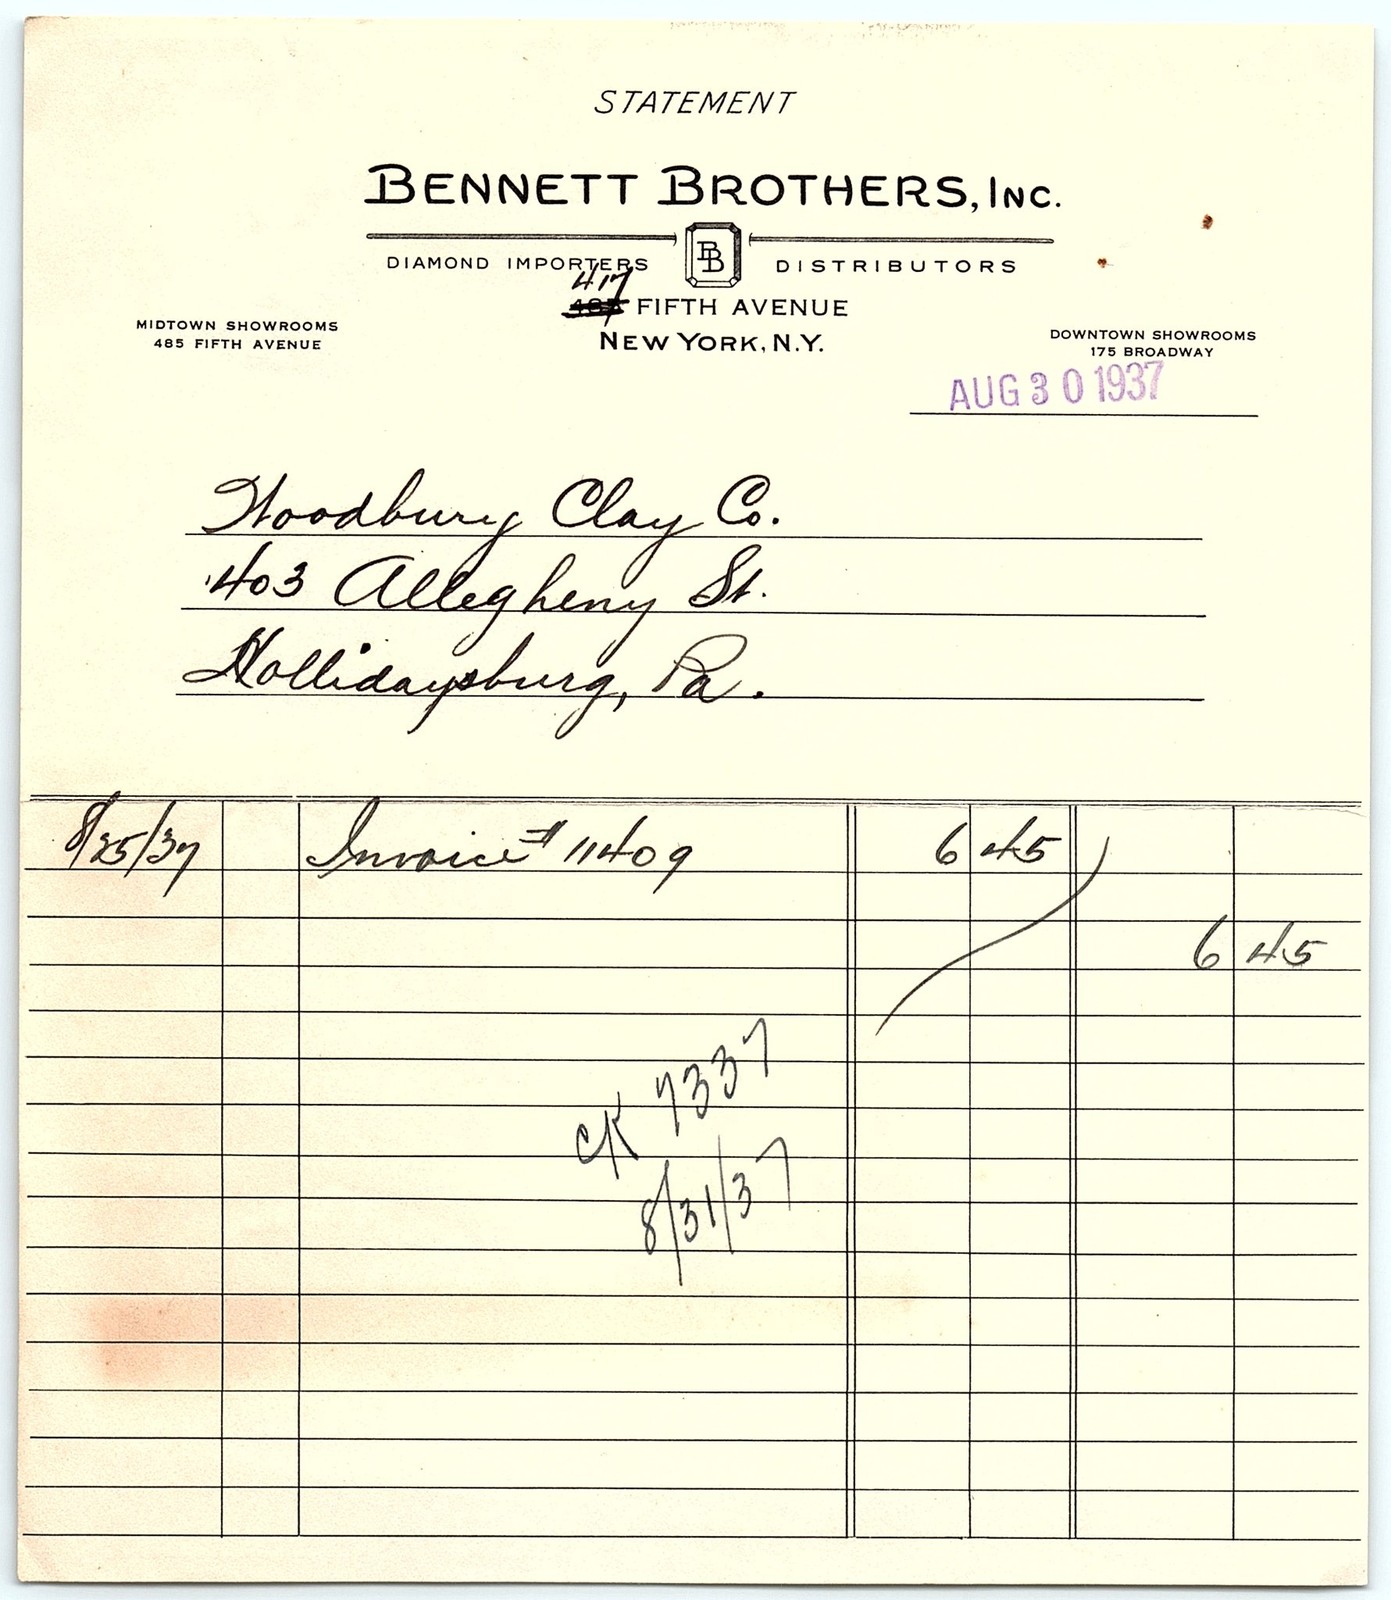 STATEMENT
BENNETT BROTHERS, INC.
DIAMOND IMPORTERS BB DISTRIBUTORS
417
485 FIFTH AVENUE
NEW YORK, N.Y.
MIDTOWN SHOWROOMS
485 FIFTH AVENUE
DOWNTOWN SHOWROOMS
175 BROADWAY
AUG 30 1937
Woodbury Clay Co.
403 Allegheny St.
Hollidaysburg, Pa.
8/25/37 Invoice # 11409 6 45
6 45
CK 7337
8/31/37